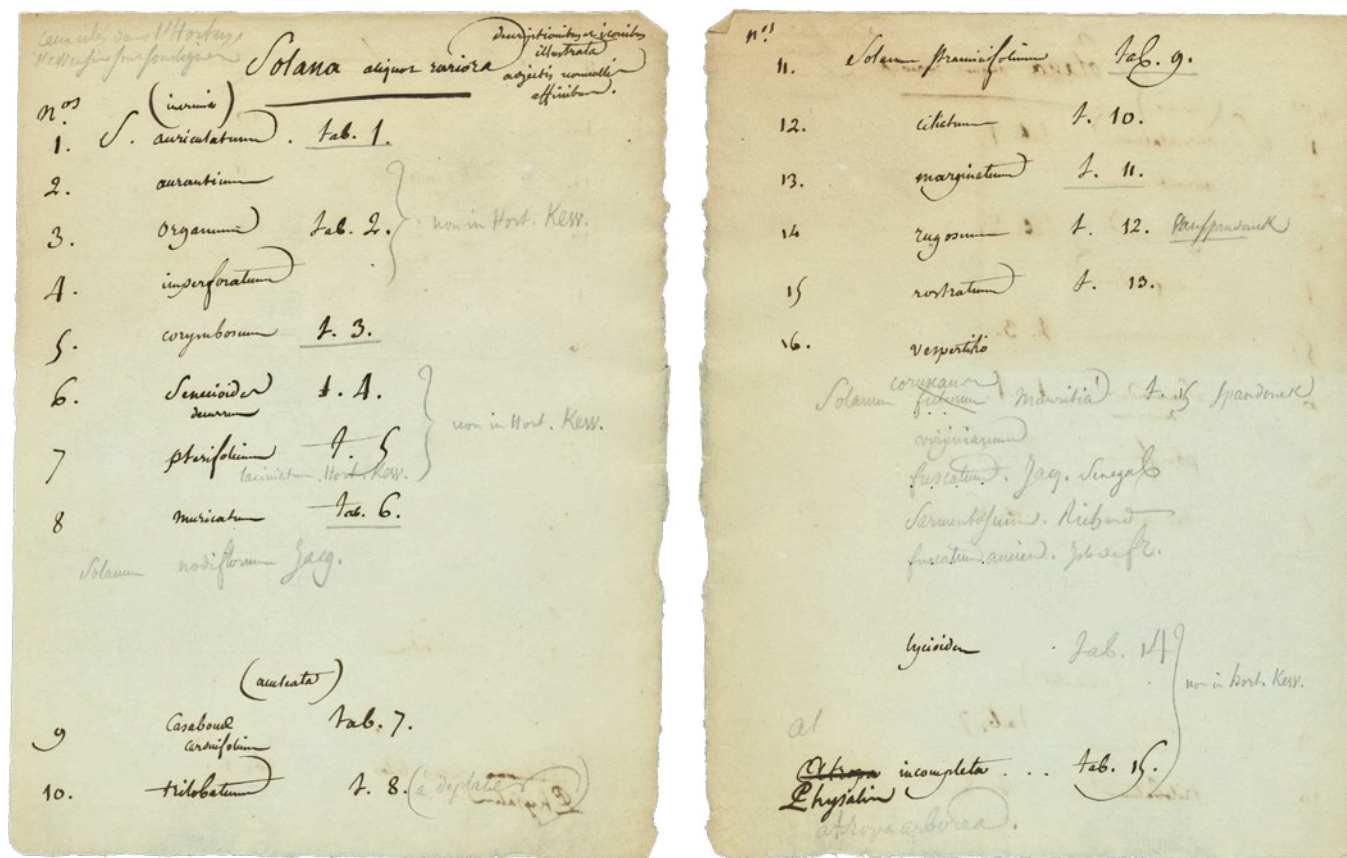 Solana aliquot rariora
descriptionibus et iconibus
illustrata
adjectis nonnullis
affinibus.
n.os
(inermia)
1. S. auriculatum. tab. 1.
2. aurantium
3. organum tab. 2. non in Hort. Kew.
4. imperforatum
5. corymbosum t. 3.
6. Senecioides t. 4.
decurrens
7 pterifolium t. 5 non in Hort. Kew.
laciniatum. Hort. Kew.
8 muricatum tab. 6.
Solanum nodiflorum Jacq.
(aculeata)
9 tab. 7.
10. trilobatum t. 8. (a deplacer)
Physalis
n.os
11. Solanum stramonifolium tab. 9.
12. ciliatum t. 10.
13. marginatum t. 11.
14 rugosum t. 12. Vanspandonck
15 rostratum t. 13.
16. vespertilio
Solanum Mauritia t. 15 Spandonck
virginianum
fuscatum. Jacq. Senegal
Sarmentosum. Richard
fuscatum
lycioides tab. 14
non in Hort. Kew.
at
Atropa incompleta ... tab. 15.
Physalis
atropa arborea.